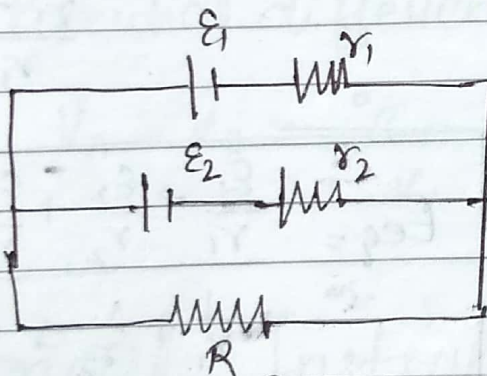 ε₁ r₁
ε₂ r₂
R